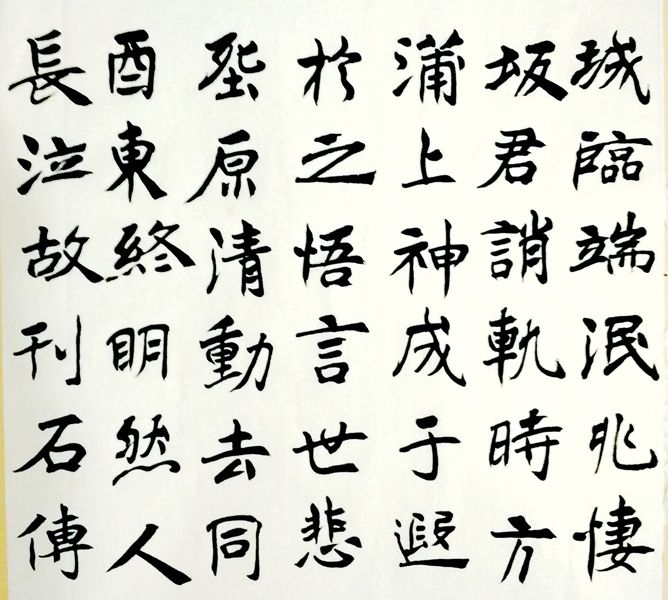 城臨端泯兆悽
坂君誚軌時方
蒲上神成于遐
於之悟言世悲
原清動去同
酉東終明然人
長泣故刊石傳